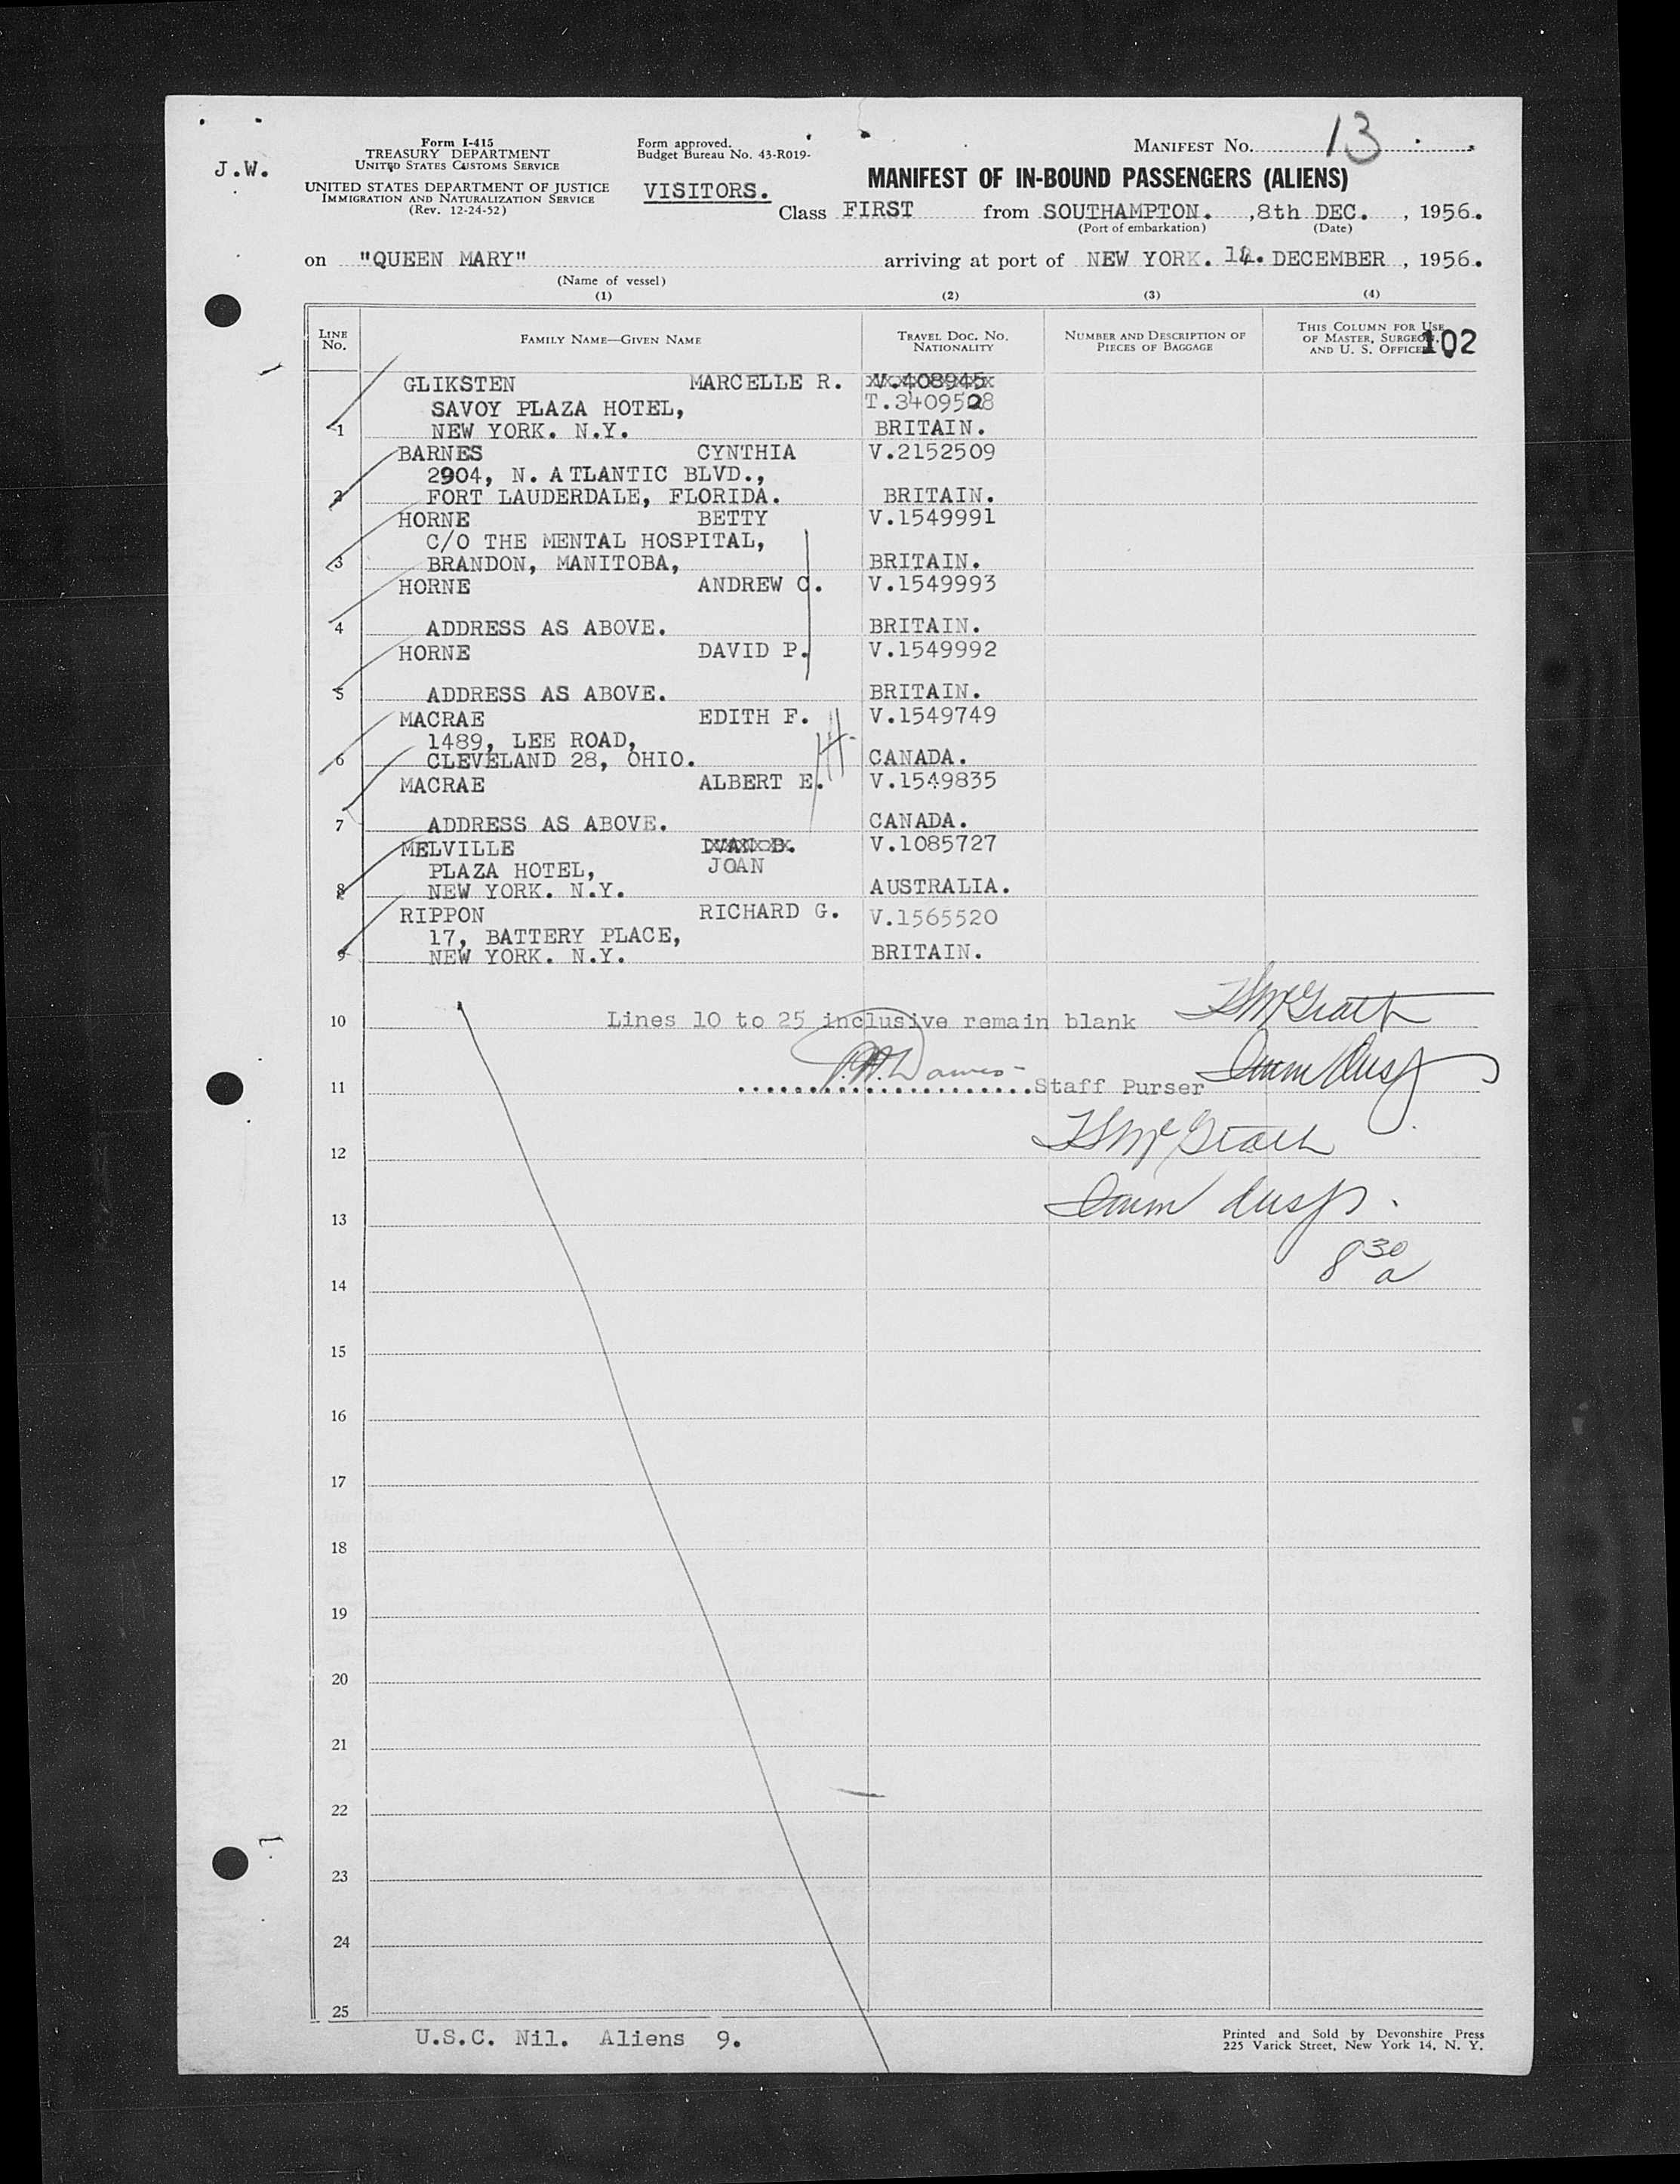 J.W.
Form I-415
TREASURY DEPARTMENT
UNITED STATES CUSTOMS SERVICE
UNITED STATES DEPARTMENT OF JUSTICE
IMMIGRATION AND NATURALIZATION SERVICE
(Rev. 12-24-52)
Form approved.
Budget Bureau No. 43-R019-
VISITORS.
MANIFEST NO. 13
MANIFEST OF IN-BOUND PASSENGERS (ALIENS)
Class FIRST from SOUTHAMPTON. , 8th DEC. , 1956.
(Port of embarkation) (Date)
on "QUEEN MARY" arriving at port of NEW YORK. 14. DECEMBER , 1956.
(Name of vessel)
(1) (2) (3) (4)
LINE NO. FAMILY NAME—GIVEN NAME TRAVEL DOC. NO. NATIONALITY NUMBER AND DESCRIPTION OF PIECES OF BAGGAGE THIS COLUMN FOR USE OF MASTER, SURGEON, AND U. S. OFFICERS
102
GLIKSTEN MARCELLE R. V.408945
SAVOY PLAZA HOTEL, T.3409528
1 NEW YORK. N.Y. BRITAIN.
BARNES CYNTHIA V.2152509
2904, N. ATLANTIC BLVD.,
2 FORT LAUDERDALE, FLORIDA. BRITAIN.
HORNE BETTY V.1549991
C/O THE MENTAL HOSPITAL,
3 BRANDON, MANITOBA, BRITAIN.
HORNE ANDREW C. V.1549993
4 ADDRESS AS ABOVE. BRITAIN.
HORNE DAVID P. V.1549992
5 ADDRESS AS ABOVE. BRITAIN.
MACRAE EDITH F. V.1549749
1489, LEE ROAD,
6 CLEVELAND 28, OHIO. CANADA.
MACRAE ALBERT E. V.1549835
7 ADDRESS AS ABOVE. CANADA.
MELVILLE IVAN B. V.1085727
PLAZA HOTEL, JOAN
8 NEW YORK. N.Y. AUSTRALIA.
RIPPON RICHARD G. V.1565520
17, BATTERY PLACE,
9 NEW YORK. N.Y. BRITAIN.
10 Lines 10 to 25 inclusive remain blank McGrath
11 Staff Purser Imm Insp
12 McGrath
13 Imm Insp.
8 30 a
14
15
16
17
18
19
20
21
22
23
24
25
U.S.C. Nil. Aliens 9.
Printed and Sold by Devonshire Press
225 Varick Street, New York 14, N. Y.